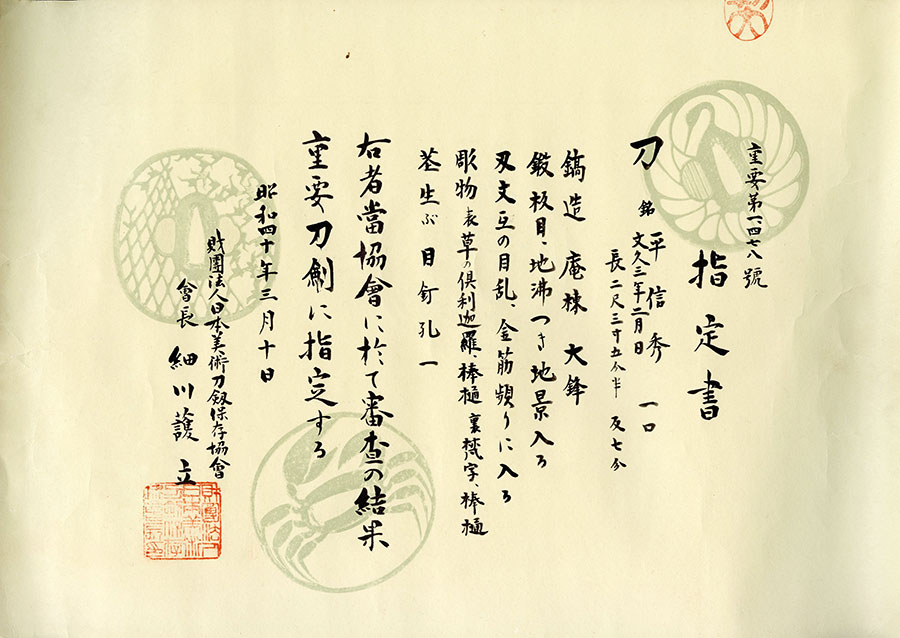 重要第一、四七八號
指定書
刀 銘 平信秀 一口
文久三年二月日
長二尺三寸五分半 反七分
鎬造 庵棟 大鋒
鍛板目、地沸つき地景入る
刃文互の目乱、金筋頻りに入る
彫物 表草の倶利迦羅、棒樋 裏梵字、棒樋
茎生ぶ 目釘孔一
右者當協會に於て審査の結果
重要刀劍に指定する
昭和四十年三月十日
財團法人日本美術刀剱保存協會
會長 細川護立